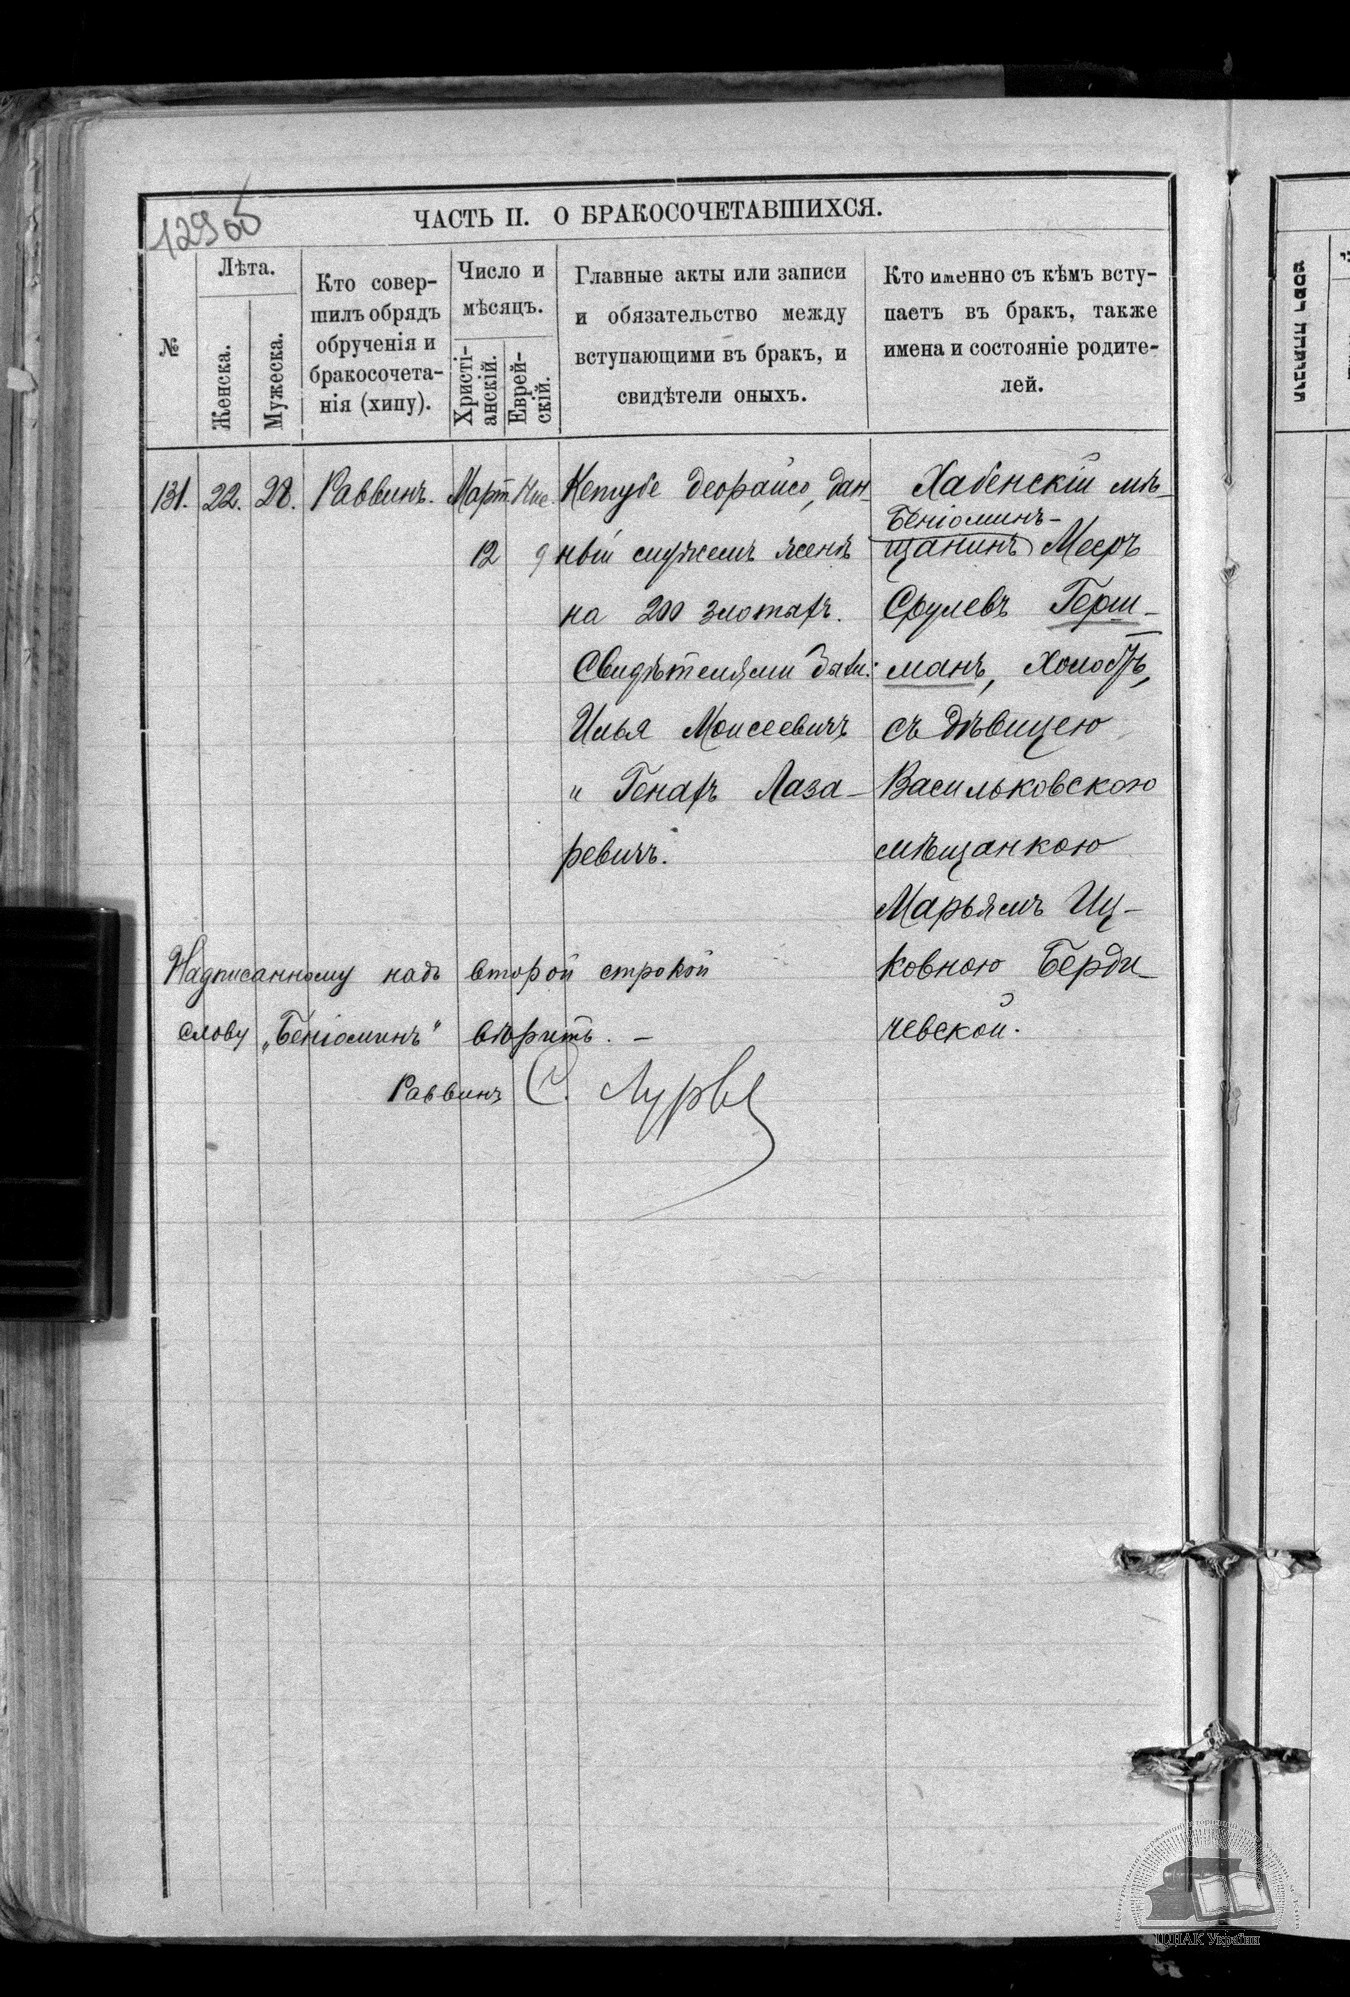 129об
ЧАСТЬ II. О БРАКОСОЧЕТАВШИХСЯ.
№
Лѣта.
Женска.
Мужеска.
Кто совер-
шилъ обрядъ
обрученія и
бракосочета-
нія (хипу).
Число и
мѣсяцъ.
Христі-
анскій.
Еврей-
скій.
Главные акты или записи
и обязательство между
вступающими въ бракъ, и
свидѣтели оныхъ.
Кто именно съ кѣмъ всту-
паетъ въ бракъ, также
имена и состояніе родите-
лей.
131.
22.
28.
Раввинъ.
Март
12
Нис.
9
Кетубе деорайсо, дан-
ный мужемъ женѣ
на 200 злотыхъ.
Свидѣтелями были:
Илья Моисеевичъ
" Генахъ Лаза-
ревичъ.
Хабенскій мѣ-
Беніоминъ-
щанинъ Мееръ
Срулевъ Герш-
манъ, холостъ,
съ дѣвицею
Васильковскою
мѣщанкою
Марьямъ Иц-
ковною Берди
чевской.
Надписанному надъ второй строкой
слову „Беніоминъ" вѣрить. –
Раввинъ С. Лурье
ЦДІАК України